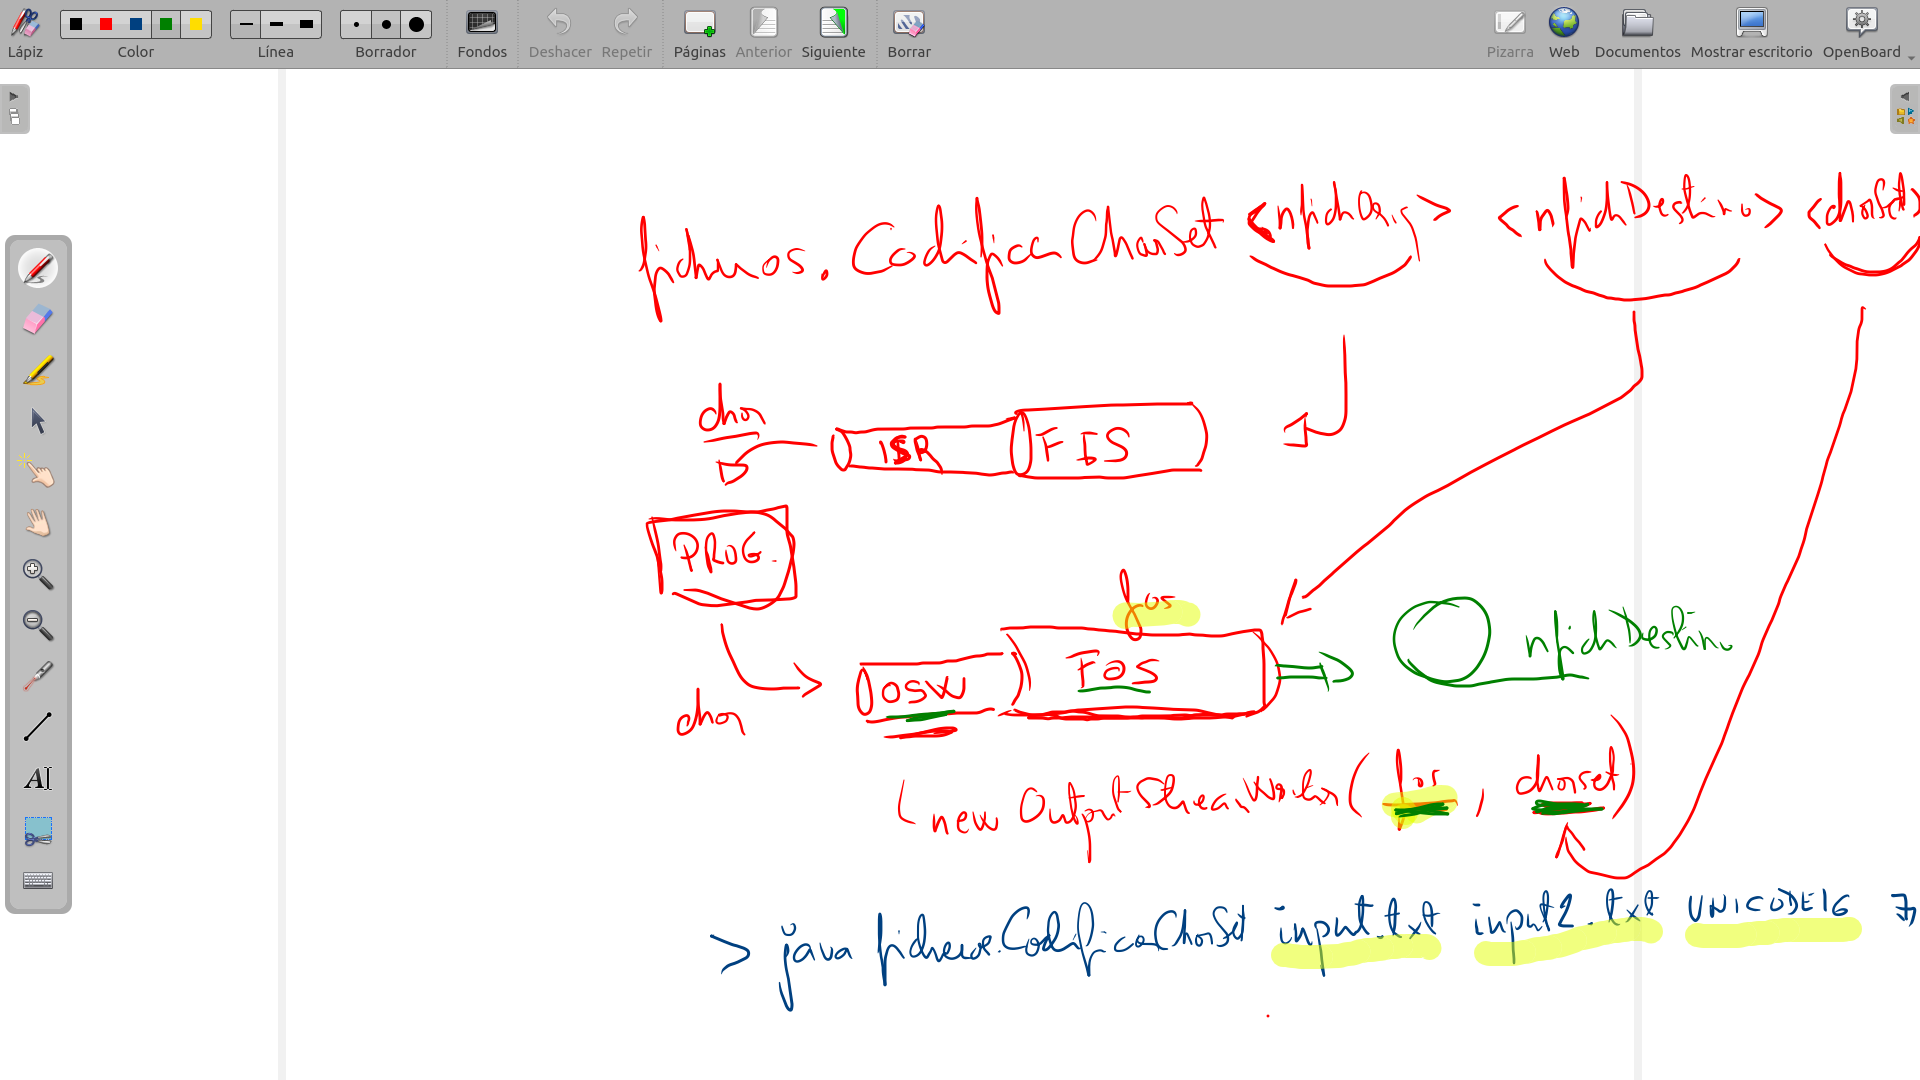 Lápiz Color Línea Borrador Fondos Deshacer Repetir Páginas Anterior Siguiente Borrar Pizarra Web Documentos Mostrar escritorio OpenBoard
ficheros.CodificaCharSet <nfichOrig> <nfichDestino> <charSet>
char
ISR FIS
PROG.
fos
nfichDestino
OSW FOS
char
new OutputStreamWriter(fos, charset)
> java ficheros.CodificaCharSet input.txt input2.txt UNICODE16
A